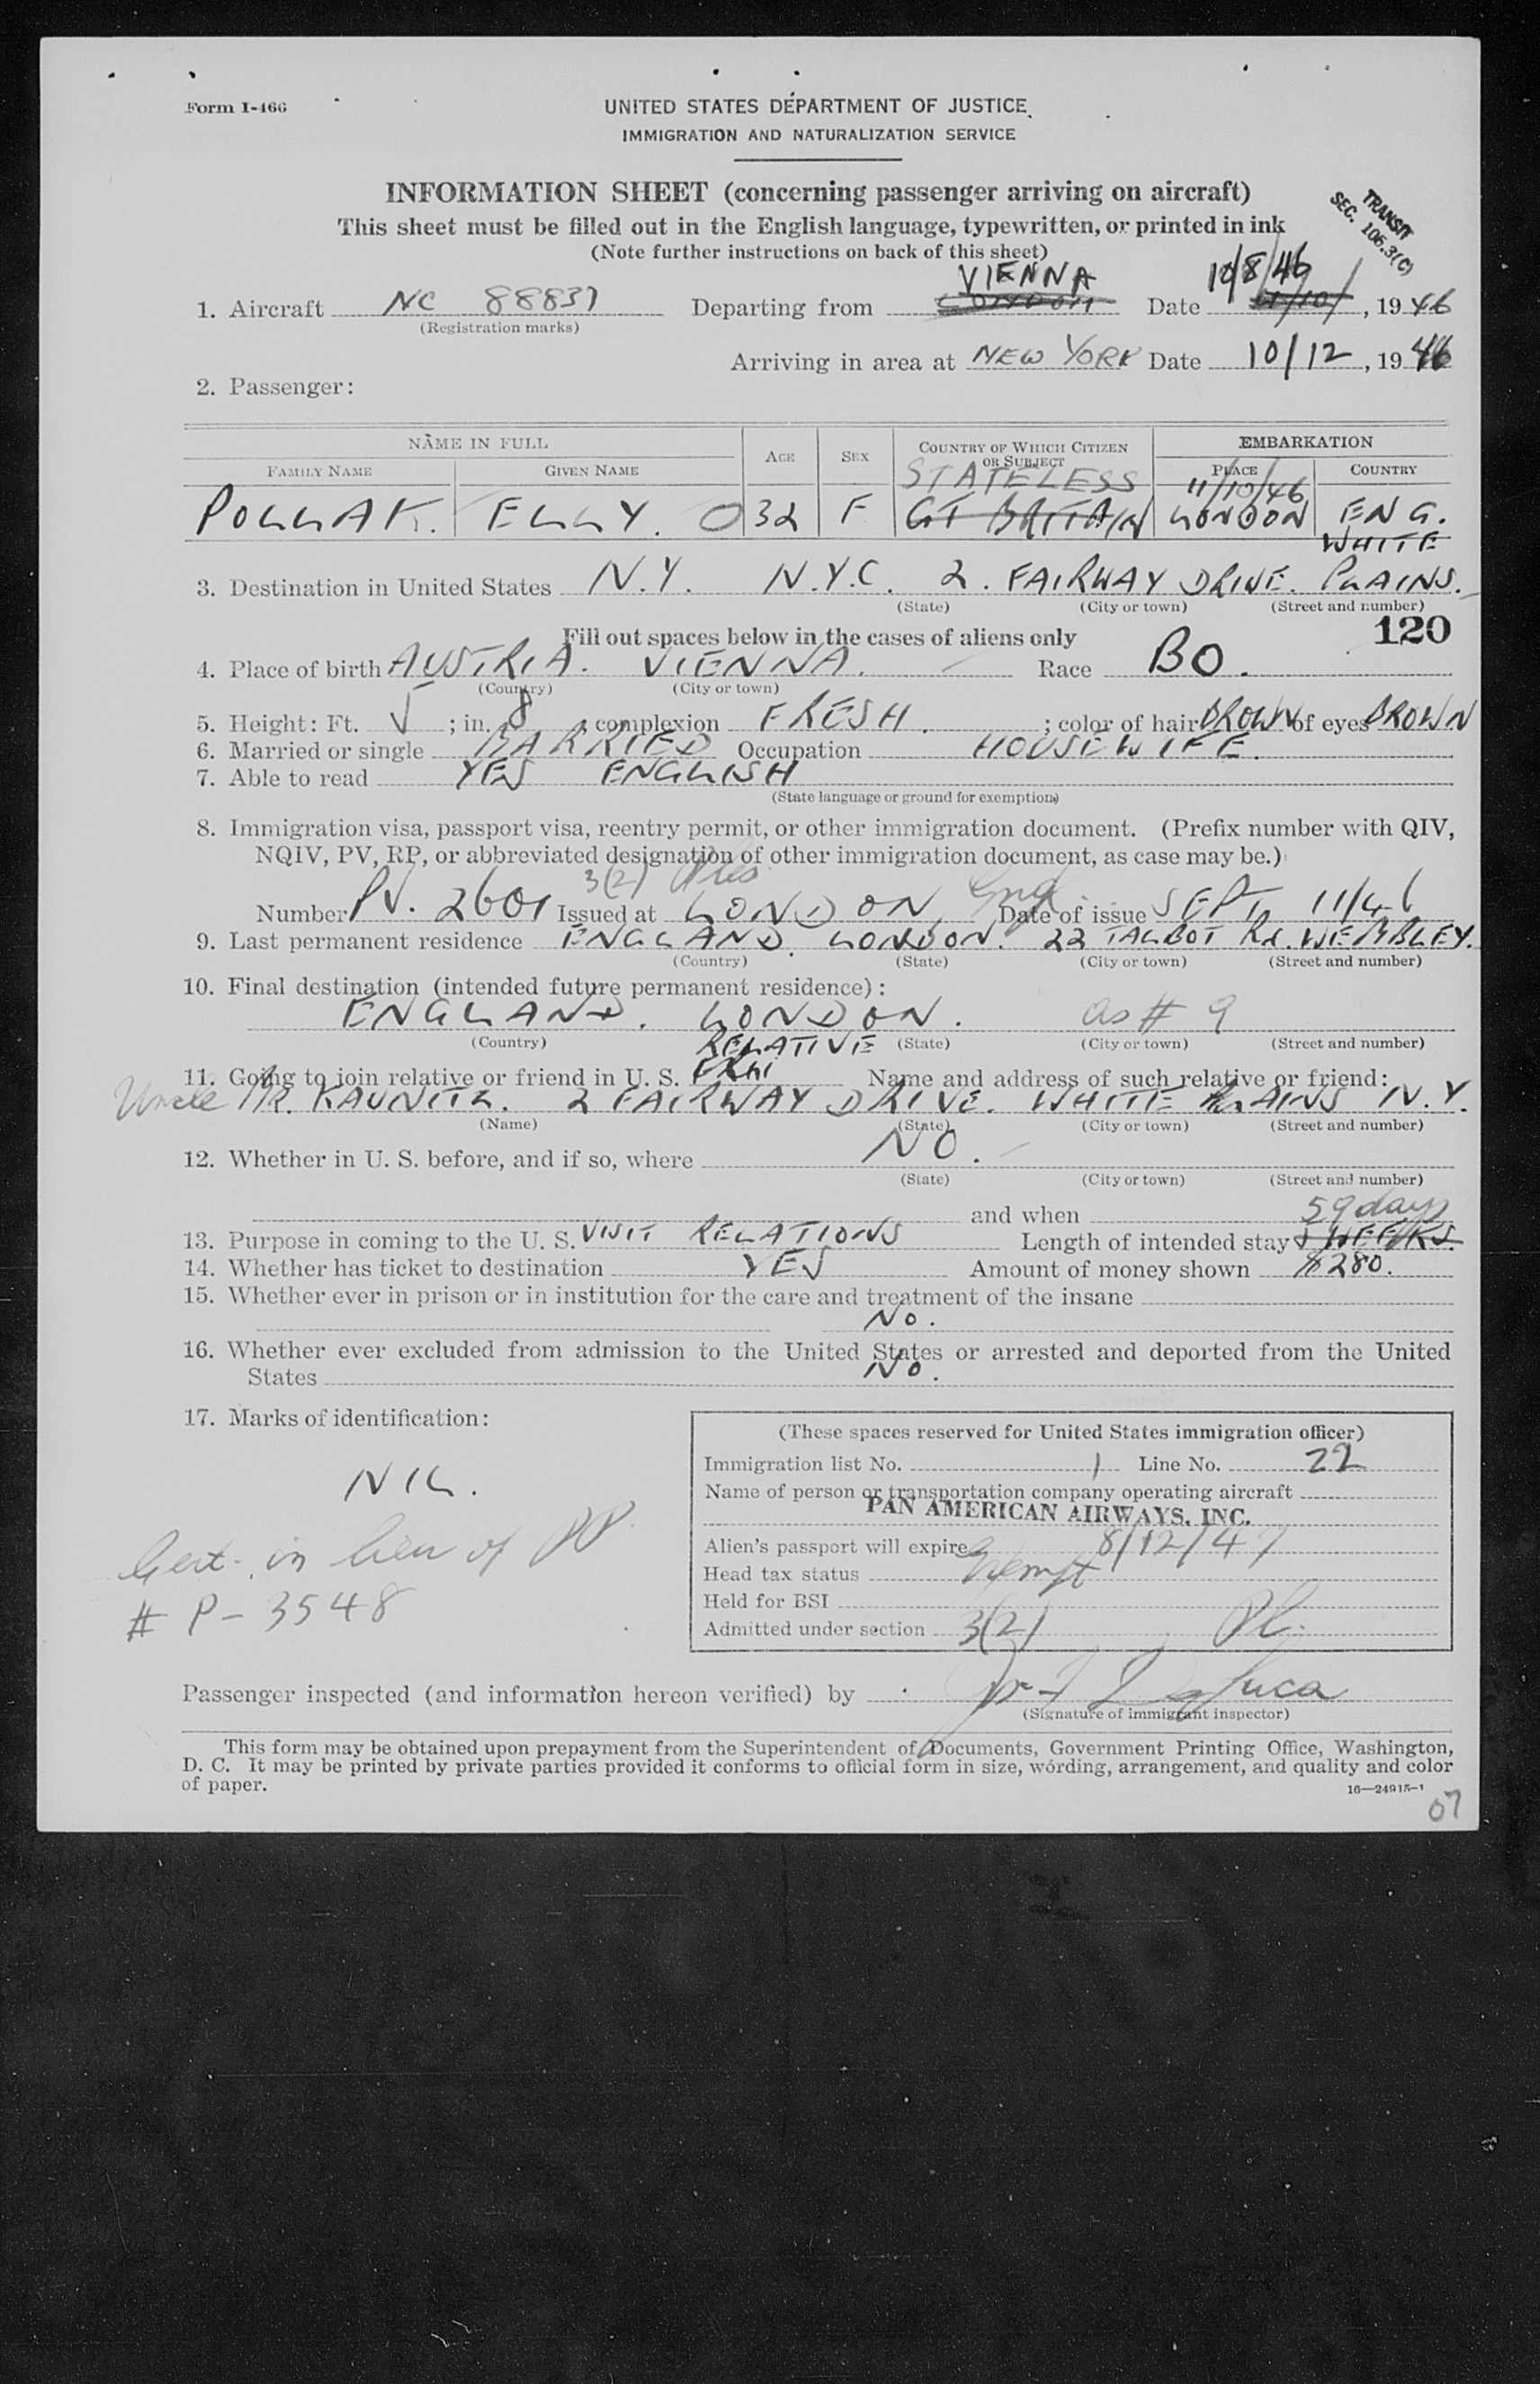 Form I-466
UNITED STATES DEPARTMENT OF JUSTICE
IMMIGRATION AND NATURALIZATION SERVICE
INFORMATION SHEET (concerning passenger arriving on aircraft)
This sheet must be filled out in the English language, typewritten, or printed in ink
(Note further instructions on back of this sheet)
TRANSIT
SEC. 106.3(C)
VIENNA 10/8/46
1. Aircraft NC 88837 Departing from London Date , 1946
(Registration marks)
Arriving in area at NEW YORK Date 10/12, 1946
2. Passenger:
NAME IN FULL AGE SEX COUNTRY OF WHICH CITIZEN OR SUBJECT EMBARKATION
FAMILY NAME GIVEN NAME PLACE COUNTRY
STATELESS 11/10/46
POLLAK. ELLY. 32 F GT BRITAIN LONDON ENG.
WHITE
3. Destination in United States N.Y. N.Y.C. 2. FAIRWAY DRIVE. PLAINS.
(State) (City or town) (Street and number)
Fill out spaces below in the cases of aliens only 120
4. Place of birth AUSTRIA. VIENNA. Race BO.
(Country) (City or town)
5. Height: Ft. 5; in. 8; complexion FRESH.; color of hair BROWN of eyes BROWN
6. Married or single MARRIED Occupation HOUSEWIFE.
7. Able to read YES ENGLISH
(State language or ground for exemption)
8. Immigration visa, passport visa, reentry permit, or other immigration document. (Prefix number with QIV,
NQIV, PV, RP, or abbreviated designation of other immigration document, as case may be.)
3(2)
Number PV. 2601 Issued at LONDON, Eng. Date of issue SEPT 11/46
9. Last permanent residence ENGLAND. LONDON. 22 TALBOT Rd. WEMBLEY.
(Country) (State) (City or town) (Street and number)
10. Final destination (intended future permanent residence):
ENGLAND. LONDON. as # 9
(Country) (State) (City or town) (Street and number)
RELATIVE
11. Going to join relative or friend in U. S. Name and address of such relative or friend:
Uncle MR. KAUNITZ. 2 FAIRWAY DRIVE. WHITE PLAINS N.Y.
(Name) (State) (City or town) (Street and number)
12. Whether in U. S. before, and if so, where NO.
(State) (City or town) (Street and number)
and when
59 days
13. Purpose in coming to the U. S. VISIT RELATIONS Length of intended stay 8 WEEKS.
14. Whether has ticket to destination YES Amount of money shown $280.
15. Whether ever in prison or in institution for the care and treatment of the insane
No.
16. Whether ever excluded from admission to the United States or arrested and deported from the United
States No.
17. Marks of identification:
NIL.
Cert. in lieu of PP.
# P-3548
(These spaces reserved for United States immigration officer)
Immigration list No. 1 Line No. 22
Name of person or transportation company operating aircraft
PAN AMERICAN AIRWAYS, INC.
Alien's passport will expire 8/12/47
Head tax status Exempt
Held for BSI
Admitted under section 3(2)
Passenger inspected (and information hereon verified) by
(Signature of immigrant inspector)
This form may be obtained upon prepayment from the Superintendent of Documents, Government Printing Office, Washington,
D. C. It may be printed by private parties provided it conforms to official form in size, wording, arrangement, and quality and color
of paper.
16—24915-1
07